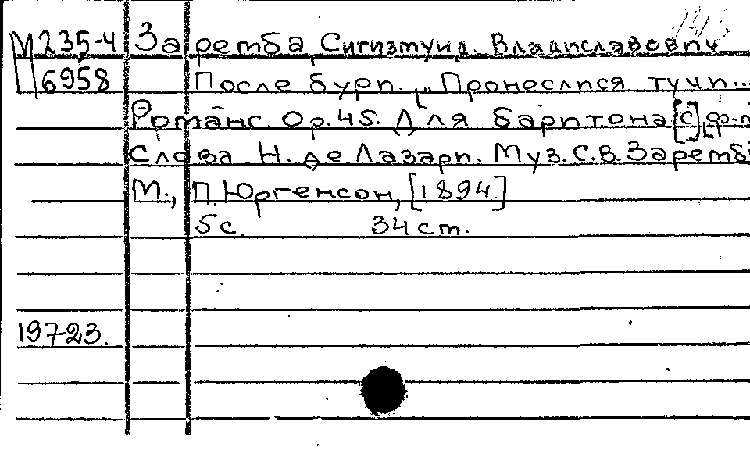 М 235-4 Зарემба, Сигизмунд Владиславович
6958 После бури. "Пронеслися тучи...
Романс Op.45. Для баритона [с] ф-п
Слова Н. де Лазари. Муз. С.В. Заремб
М., П. Юргенсон, [1894]
5 с. 34 см.
197-23.